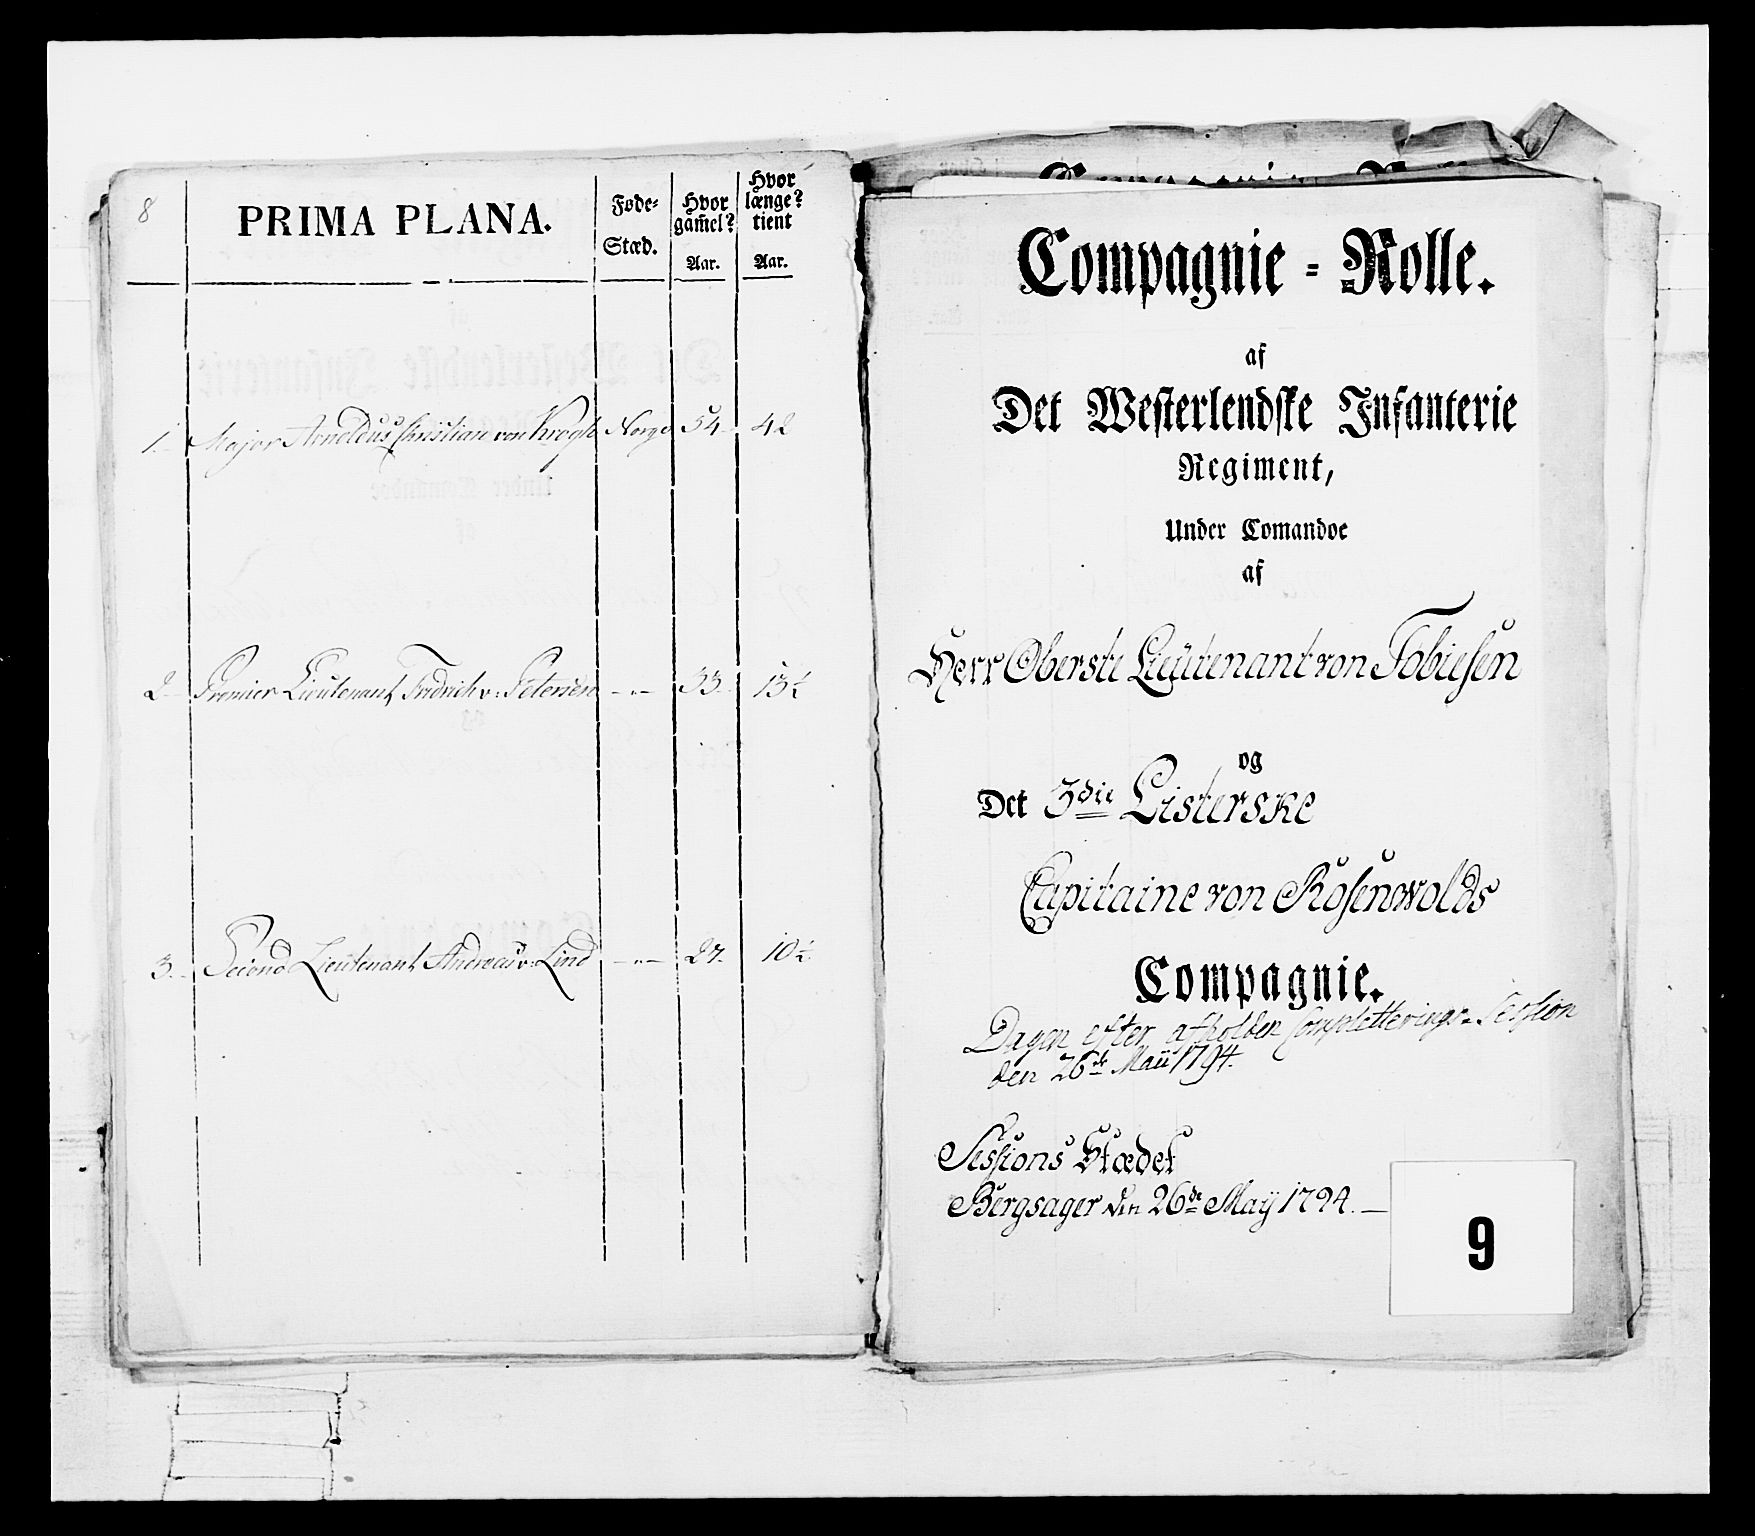 8
PRIMA PLANA.
Føde-
Stæd.
Hvor
gam̃el?
Aar.
Hvor
længe?
tient
Aar.
1. Major Arnoldus Christian von Krogh Norge 54 42
2 Premier Lieutenant Fridrich v: Petersen -"- 33 13½
3. Second Lieutenant Andreas v: Lind -"- 27. 10½
Compagnie - Rolle.
af
Det Westerlendske Infanterie
Regiment,
Under Comandoe
af
Herr Oberste Lieutenant von Tobiesen
og
Det 3die Listerske
Capitaine von Rosenwolds
Compagnie.
Dagen efter afholden Completterings-Session
den 26de Maii 1794.
Sessions Stædet
Bergsager den 26de Maÿ 1794.
9